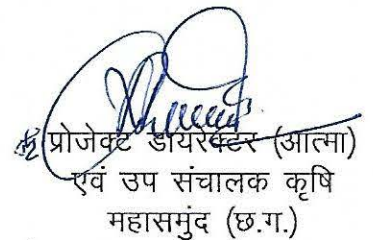 प्रोजेक्ट डायरेक्टर (आत्मा)
एवं उप संचालक कृषि
महासमुंद (छ.ग.)